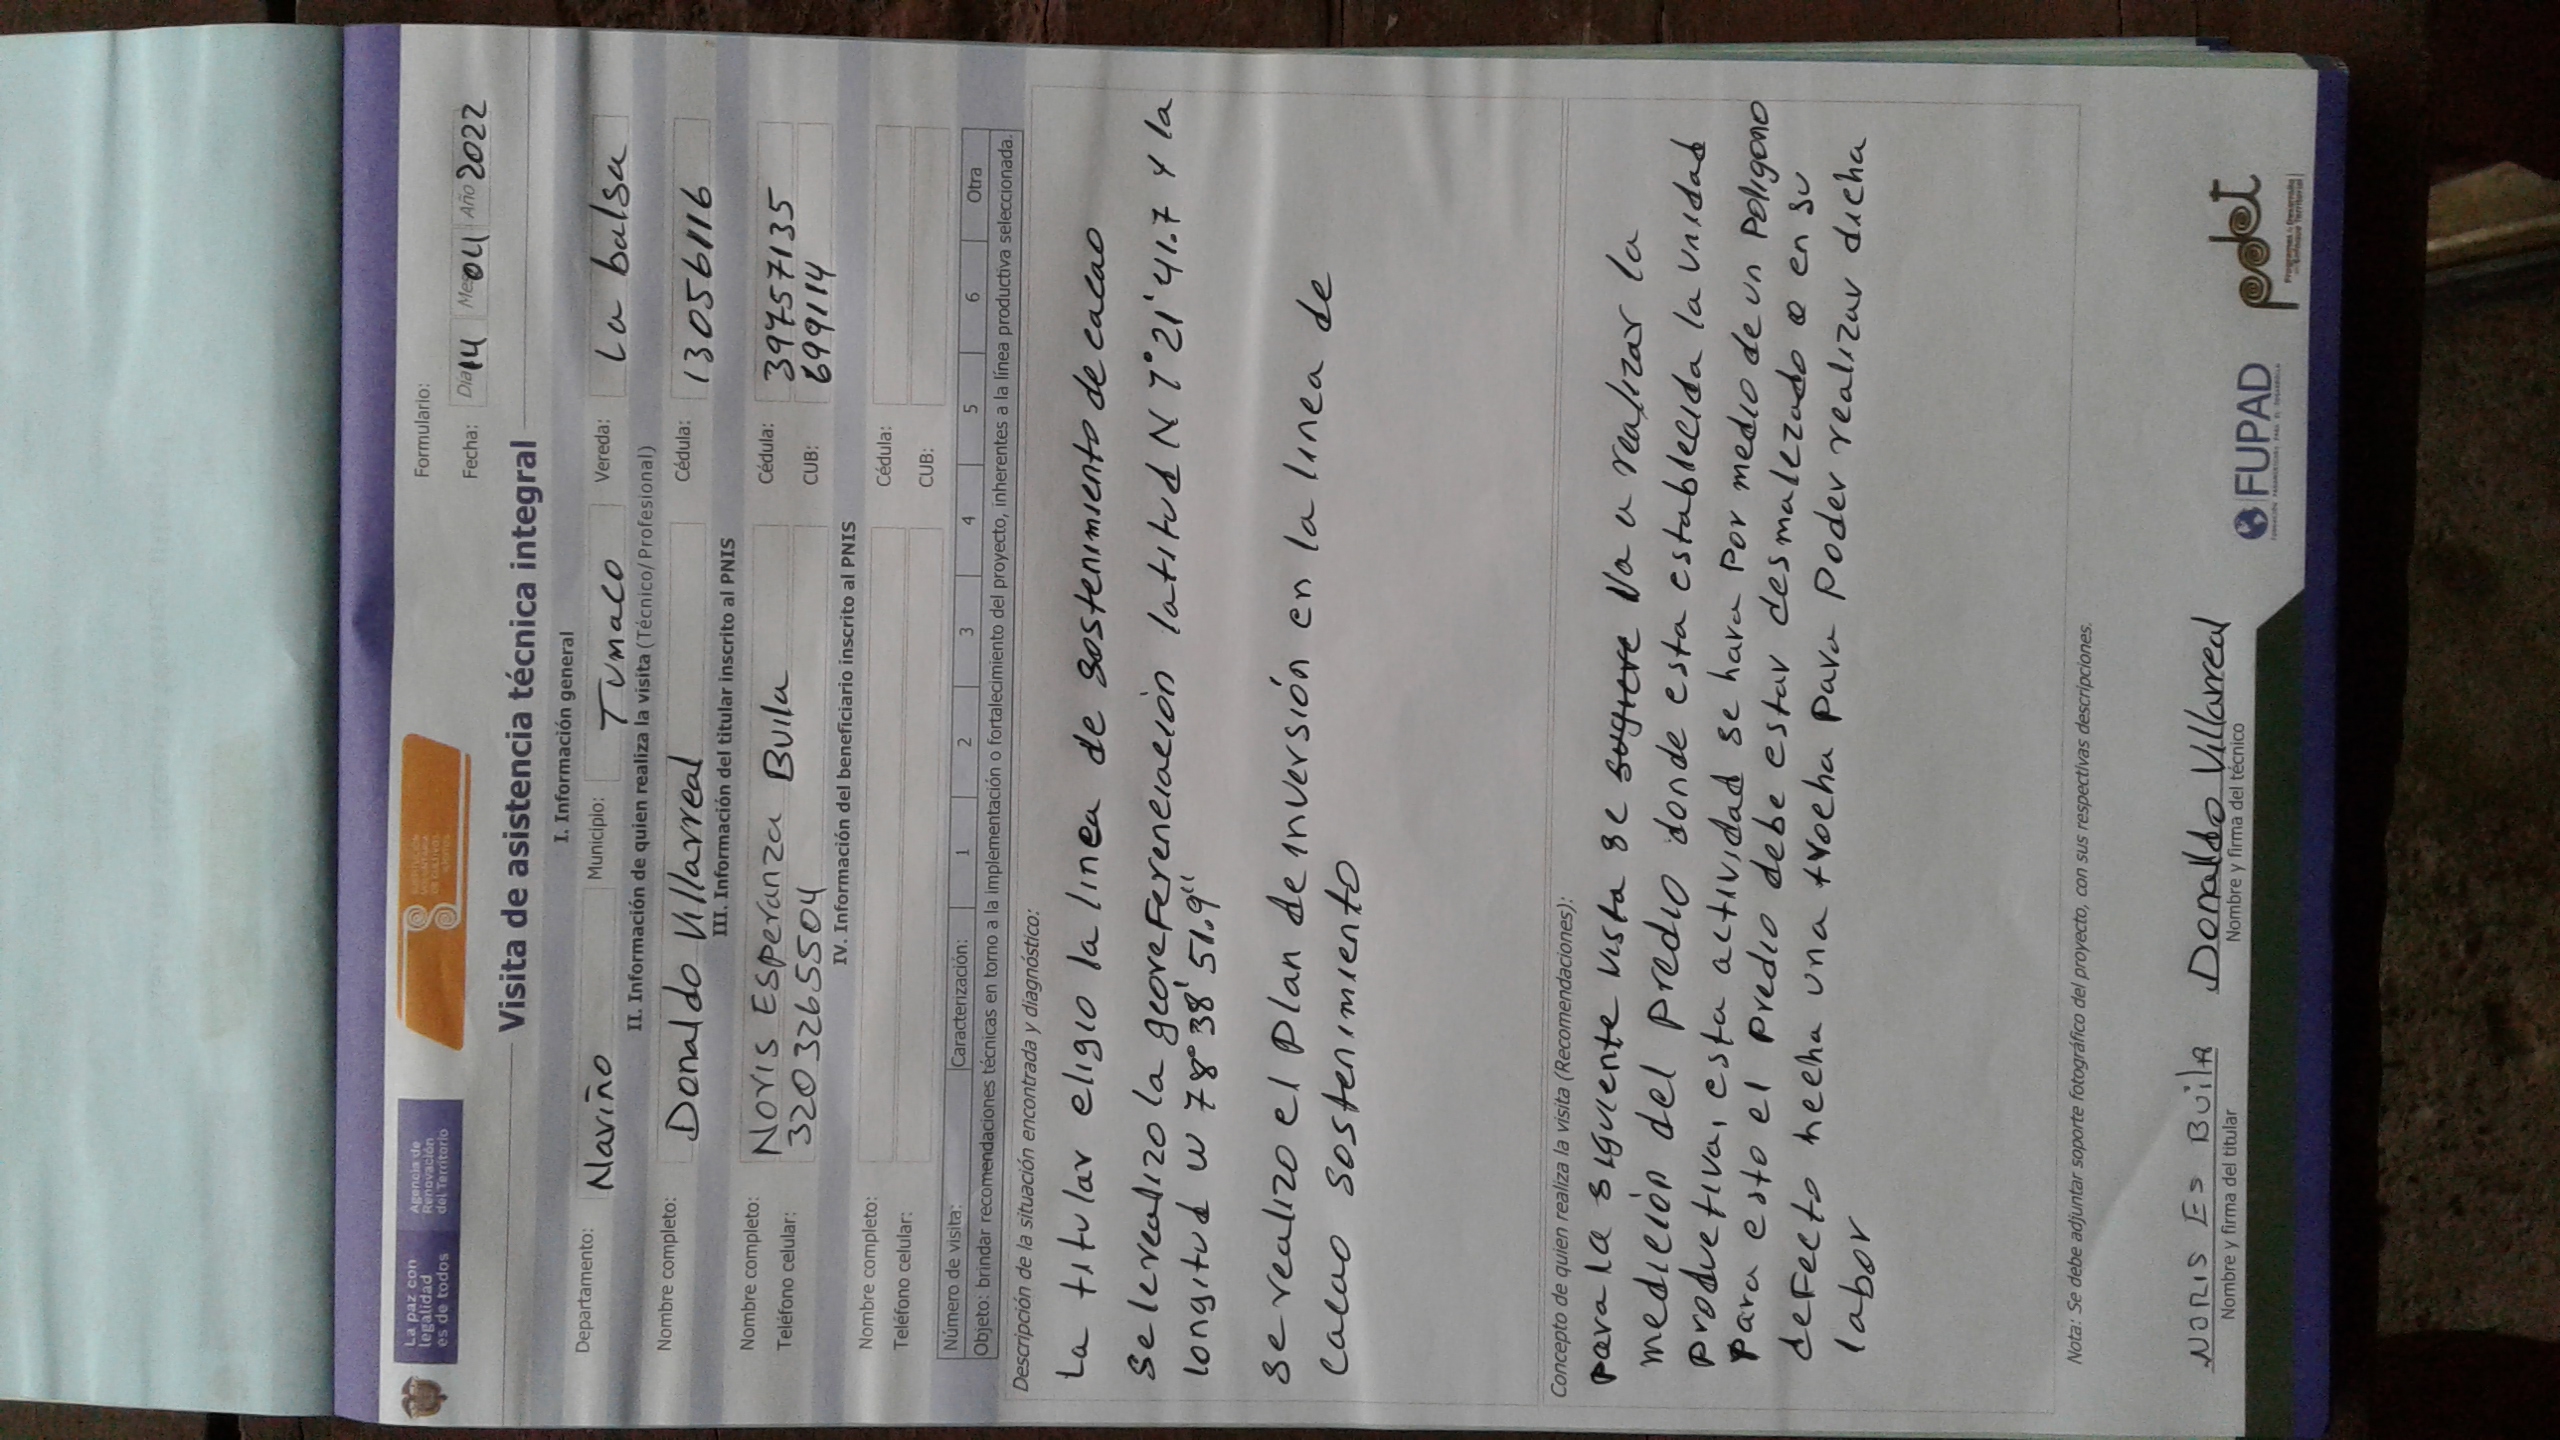 La paz con
legalidad
es de todos
Agencia de
Renovación
del Territorio
SUSTITUCIÓN
VOLUNTARIA
DE CULTIVOS
ILÍCITOS
Formulario:
Fecha: Día 14 Mes 04 Año 2022
Visita de asistencia técnica integral
I. Información general
Departamento: Nariño Municipio: Tumaco Vereda: La balsa
II. Información de quien realiza la visita (Técnico/Profesional)
Nombre completo: Donaldo Villarreal Cédula: 13056116
III. Información del titular inscrito al PNIS
Nombre completo: Noris Esperanza Buila Cédula: 39757135
Teléfono celular: 3203265504 CUB: 699114
IV. Información del beneficiario inscrito al PNIS
Nombre completo: Cédula:
Teléfono celular: CUB:
Número de visita: Caracterización: 1 2 3 4 5 6 Otra
Objeto: brindar recomendaciones técnicas en torno a la implementación o fortalecimiento del proyecto, inherentes a la línea productiva seleccionada.
Descripción de la situación encontrada y diagnóstico:
La titular eligio la linea de sostenimiento de cacao
se le realizo la georeferenciación latitud N 1° 21' 41.7 y la
longitud w 78° 38' 51.9"
se realizo el plan de inversión en la linea de
cacao sostenimiento
Concepto de quien realiza la visita (Recomendaciones):
para la siguiente visita se sugiere va a realizar la
medición del predio donde esta establecida la unidad
productiva, esta actividad se hara por medio de un poligono
para esto el predio debe estar desmalezado o en su
defecto hecha una trocha para poder realizar dicha
labor
Nota: Se debe adjuntar soporte fotográfico del proyecto, con sus respectivas descripciones.
NORIS ES BUILA Donaldo Villarreal
Nombre y firma del titular Nombre y firma del técnico
FUPAD
FUNDACIÓN PANAMERICANA PARA EL DESARROLLO
pdet
Programas de Desarrollo
con Enfoque Territorial